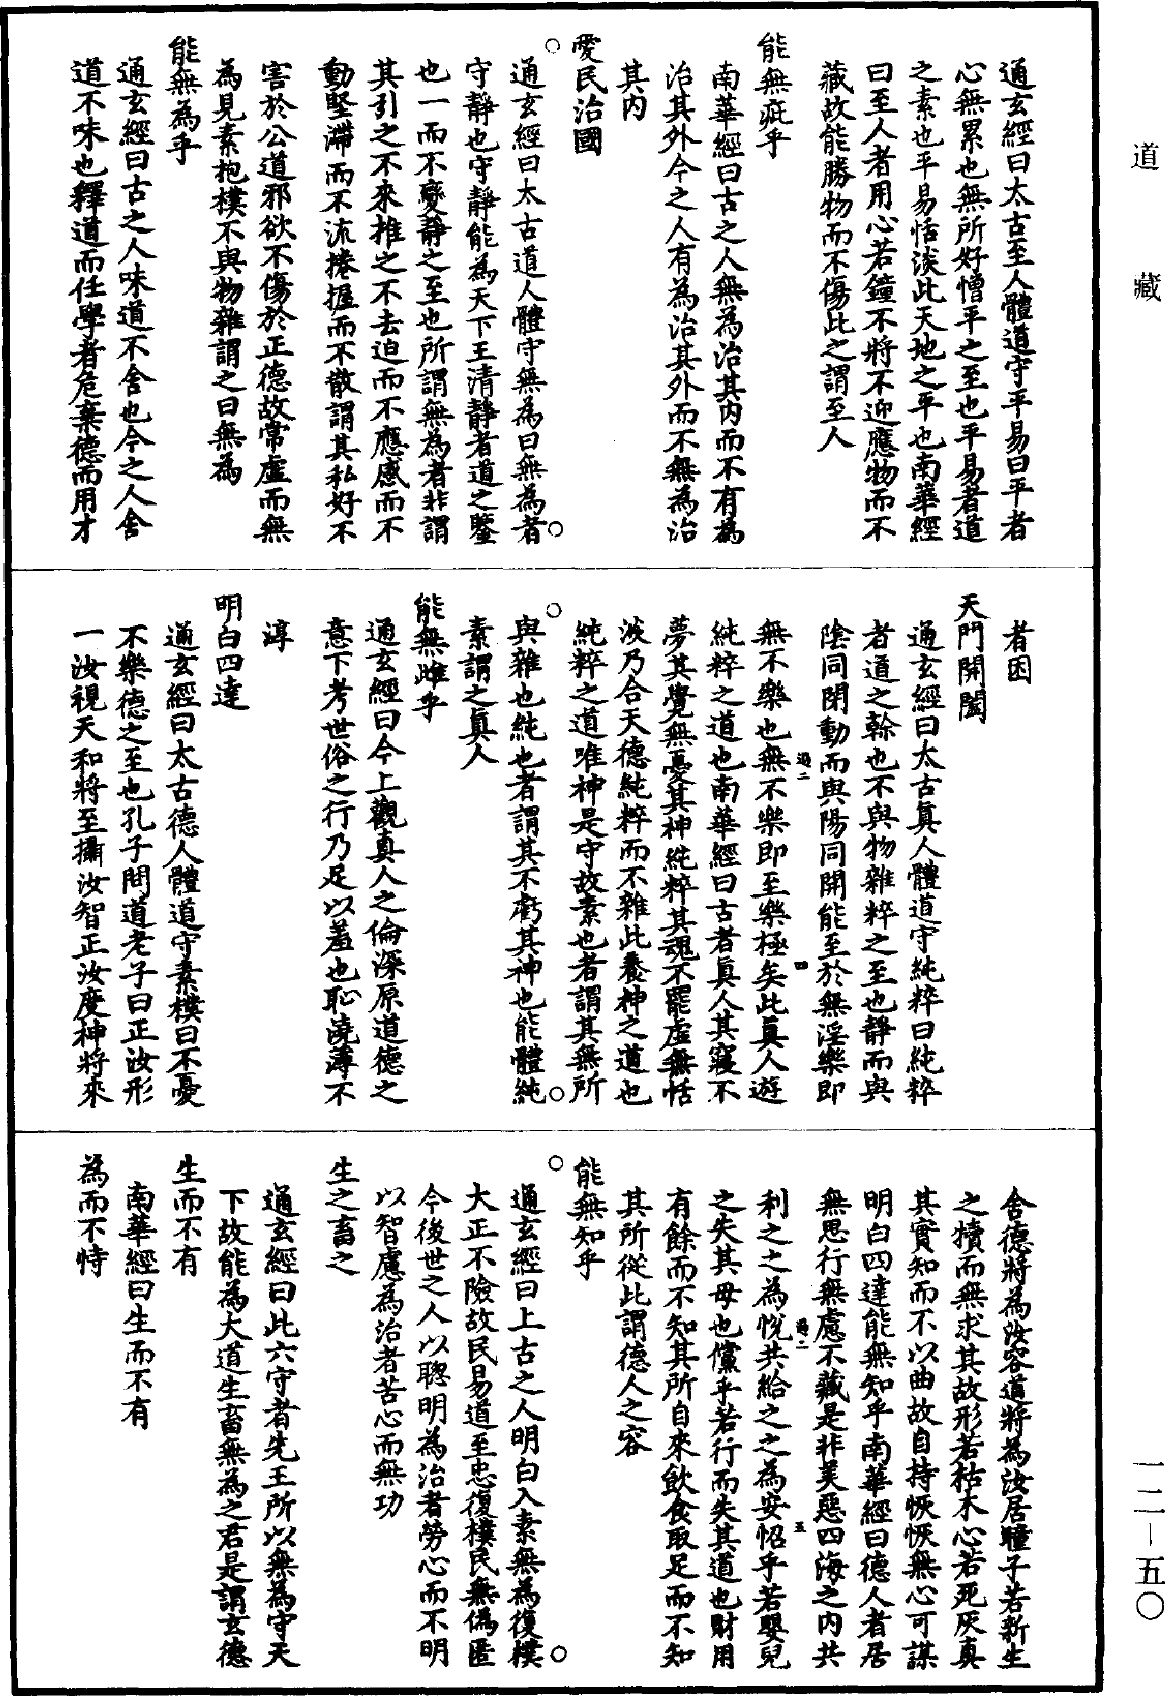 道藏
通玄經曰太古至人體道守平易曰平者
心無累也無所好憎平之至也平易者道
之素也平易恬淡此天地之平也南華經
曰至人者用心若鐘不將不迎應物而不
藏故能勝物而不傷此之謂至人
能無疵乎
南華經曰古之人無為治其內而不有為
治其外今之人有為治其外而不無為治
其內
愛民治國
通玄經曰太古道人體守無為曰無為者
守靜也守靜能為天下王清靜者道之鑒
也一而不變靜之至也所謂無為者非謂
其引之不來推之不去迫而不應感而不
動堅滯而不流捲握而不散謂其私好不
害於公道邪欲不傷於正德故常虛而無
為見素抱樸不與物雜謂之曰無為
能無為乎
通玄經曰古之人味道不舍也今之人舍
道不味也釋道而任學者危棄德而用才
者困
天門開闔
通玄經曰太古真人體道守純粹曰純粹
者道之幹也不與物雜粹之至也靜而與
陰同閉動而與陽同開能至於無淫樂即
無不樂也無不樂即至樂極矣此真人遊
純粹之道也南華經曰古者真人其寢不
夢其覺無憂其神純粹其魂不罷虛無恬
淡乃合天德純粹而不雜此養神之道也
純粹之道唯神是守故素也者謂其無所
與雜也純也者謂其不虧其神也能體純
素謂之真人
能無雌乎
通玄經曰今上觀真人之倫深原道德之
意下考世俗之行乃足以羞也恥澆薄不
淳
明白四達
通玄經曰太古德人體道守素樸曰不憂
不樂德之至也孔子問道老子曰正汝形
一汝視天和將至攝汝智正汝度神將來
舍德將為汝容道將為汝居瞳子若新生
之犢而無求其故形若枯木心若死灰真
其實知而不以曲故自持恢恢無心可謀
明白四達能無知乎南華經曰德人者居
無思行無慮不藏是非美惡四海之內共
利之之為悅共給之之為安怊乎若嬰兒
之失其母也儻乎若行而失其道也財用
有餘而不知其所自來飲食取足而不知
其所從此謂德人之容
能無知乎
通玄經曰上古之人明白入素無為復樸
大正不險故民易道至忠復樸民無偽匿
今後世之人以聰明為治者勞心而不明
以智慮為治者苦心而無功
生之畜之
通玄經曰此六守者先王所以無為守天
下故能為大道生畜無為之君是謂玄德
生而不有
南華經曰生而不有
為而不恃
一二－五〇